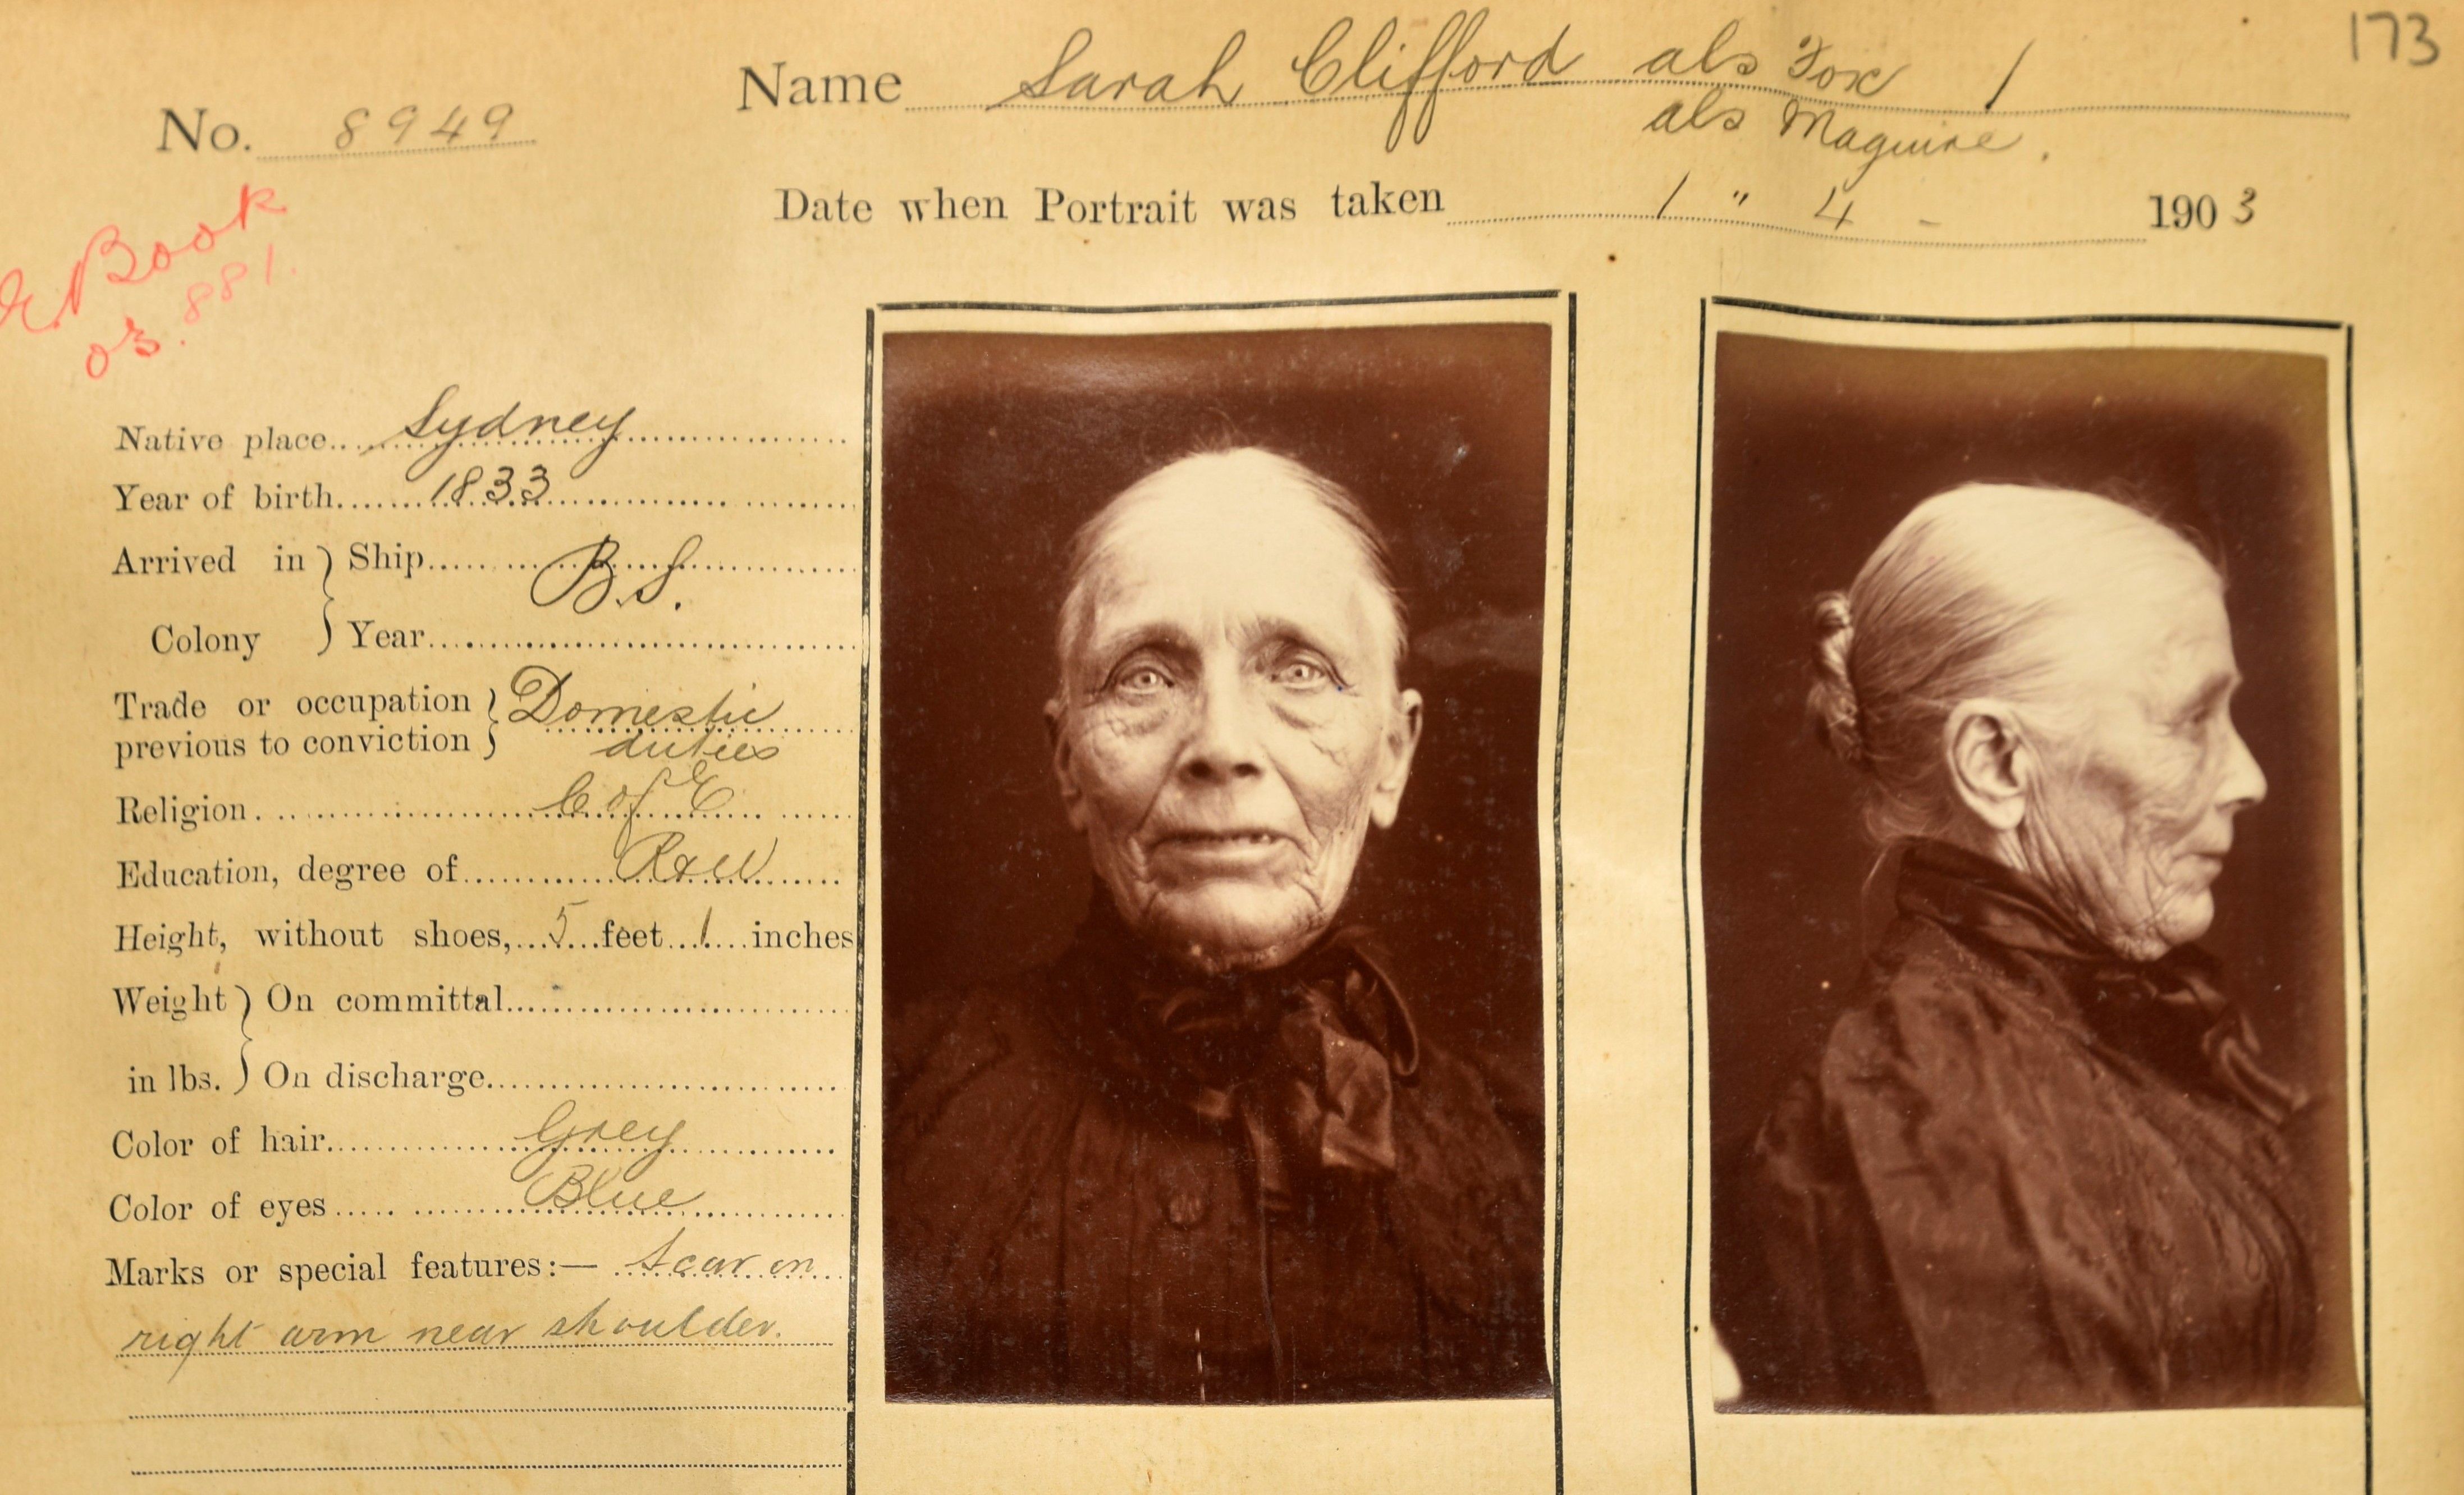 173
Name Sarah Clifford als Fox /
als Maguire.
No. 8949
Date when Portrait was taken 1 " 4 - 1903
E Book
03.881.
Native place Sydney
Year of birth 1833
Arrived in } Ship B.S.
Colony } Year
Trade or occupation } Domestic
previous to conviction } duties
Religion C of E
Education, degree of R & W
Height, without shoes, 5 feet 1 inches
Weight } On committal
in lbs. } On discharge
Color of hair Grey
Color of eyes Blue
Marks or special features:— Scar on
right arm near shoulder.